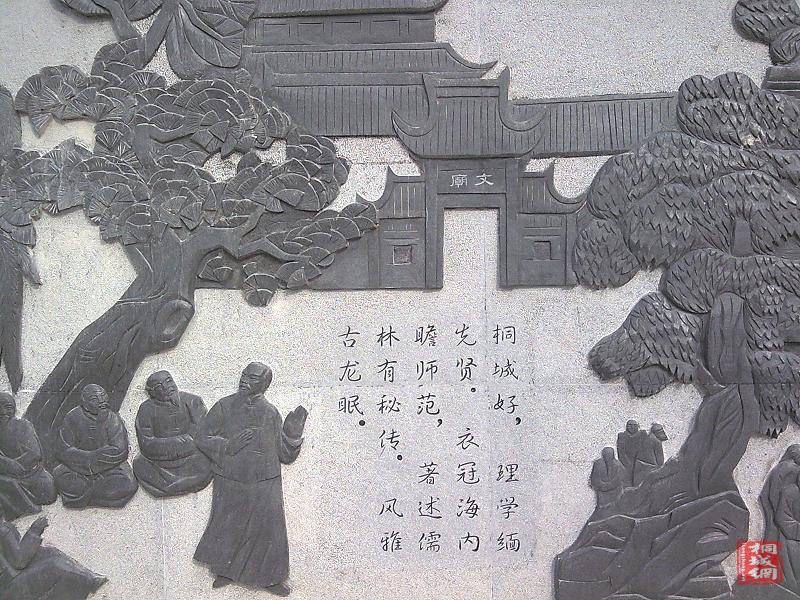 文廟
桐城好，理学缅
先贤。衣冠海内
瞻师范，著述儒
林有秘传。风雅
古龙眠。
桐城網